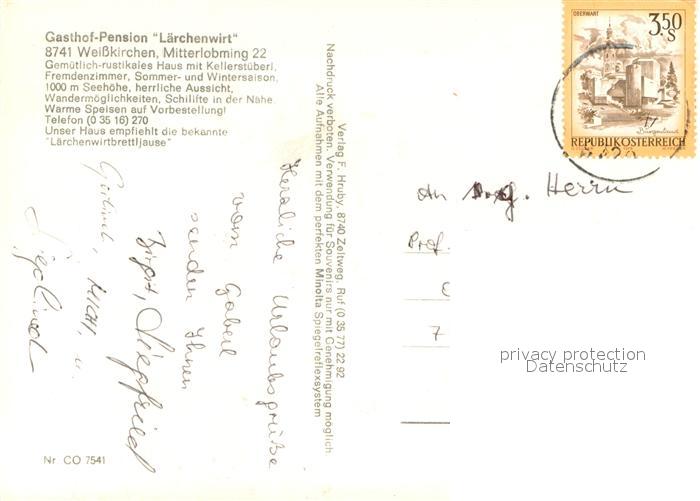 Gasthof-Pension "Lärchenwirt"
8741 Weißkirchen, Mitterlobming 22
Gemütlich-rustikales Haus mit Kellerstüberl,
Fremdenzimmer, Sommer- und Wintersaison,
1000 m Seehöhe, herrliche Aussicht,
Wandermöglichkeiten, Schilifte in der Nähe.
Warme Speisen auf Vorbestellung!
Telefon (0 35 16) 270
Unser Haus empfiehlt die bekannte
"Lärchenwirtbrettljause"
Herzliche Urlaubsgrüße
vom Gaberl
senden Ihnen
Birgit, Siegfried
MICHI, u.
Sieglinde
Nr. CO 7541
Verlag F. Hruby, 8740 Zeltweg, Ruf (0 35 77) 22 92
Nachdruck verboten. Verwendung für Souvenirs nur mit Genehmigung möglich.
Alle Aufnahmen mit dem perfekten Minolta Spiegelreflexsystem
OBERWART
3.50
S
Burgenland
REPUBLIK ÖSTERREICH
An Herrn
Prof.
7
privacy protection
Datenschutz